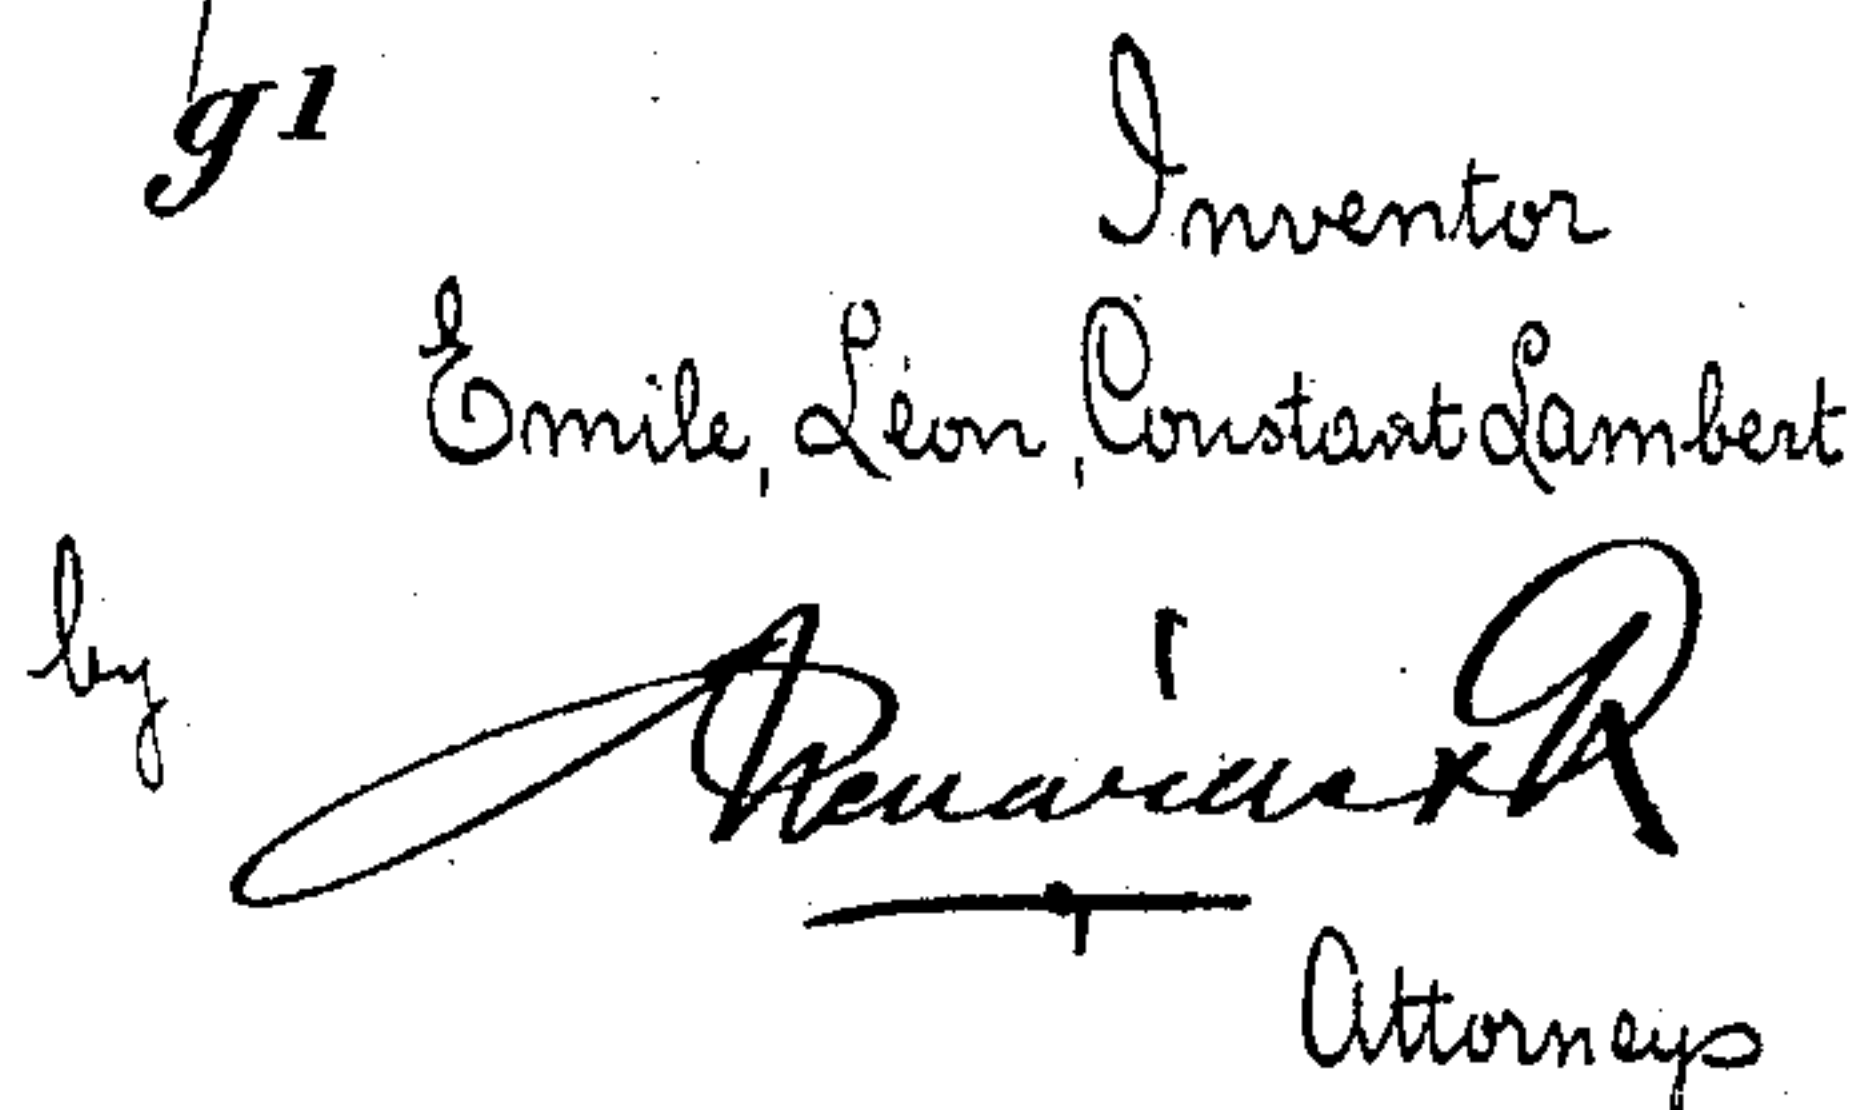 g1
Inventor
Emile, Léon, Constant Lambert
by
Attorneys